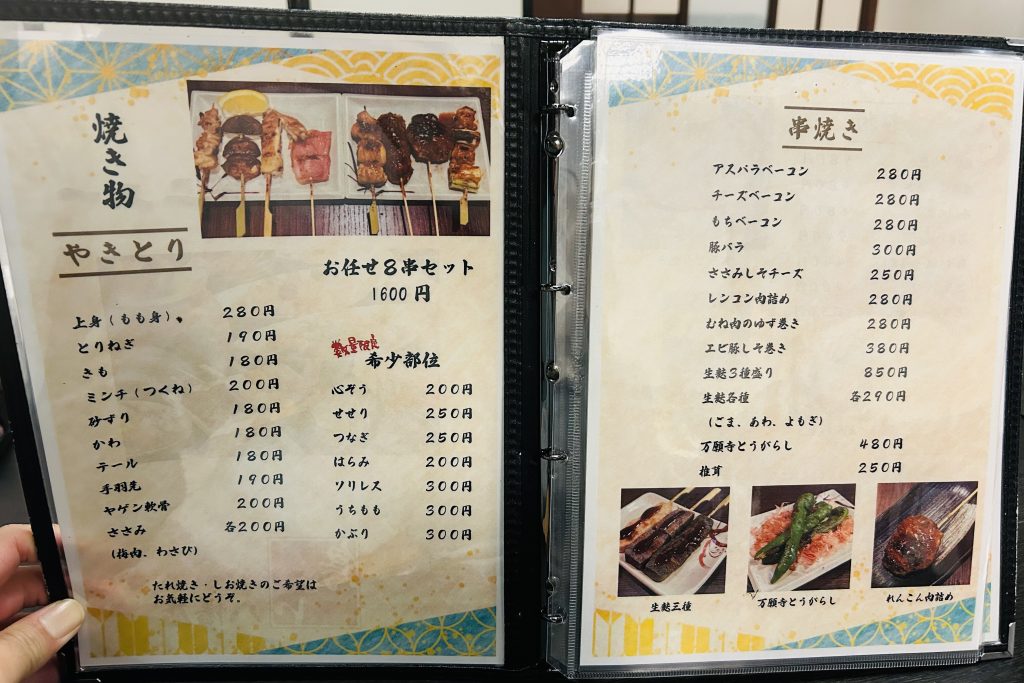 焼き物
やきとり
お任せ8串セット
1600円
上身(もも身)、 280円
とりねぎ 190円
きも 180円
ミンチ(つくね) 200円
砂ずり 180円
かわ 180円
テール 180円
手羽先 190円
ヤゲン軟骨 200円
ささみ 各200円
(梅肉、わさび)
数量限定
希少部位
心ぞう 200円
せせり 250円
つなぎ 250円
はらみ 200円
ソリレス 300円
うちもも 300円
かぶり 300円
たれ焼き・しお焼きのご希望は
お気軽にどうぞ。
串焼き
アスパラベーコン 280円
チーズベーコン 280円
もちベーコン 280円
豚バラ 300円
ささみしそチーズ 250円
レンコン肉詰め 280円
むね肉のゆず巻き 280円
エビ豚しそ巻き 380円
生麩3種盛り 850円
生麩各種 各290円
(ごま、あわ、よもぎ)
万願寺とうがらし 480円
椎茸 250円
生麩三種
万願寺とうがらし
れんこん肉詰め